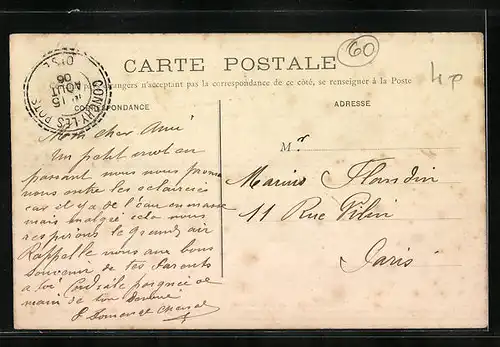 CARTE POSTALE
60
4 p
étrangers n'acceptant pas la correspondance de ce côté, se renseigner à la Poste
CORRESPONDANCE
ADRESSE
CONCHY-LES-POTS
15
AOUT
06
OISE
Mon cher Aimé
Un petit mot en
passant nous nous
nous entre les eclaircies
car il y a de l'eau en masse
mais malgré cela nous
respirons le grand air
Rappelle nous aux bons
souvenir de tes Parents
a toi Cordiale poignée de
main de ton
Mr
Marius Flandin
11 Rue
Paris